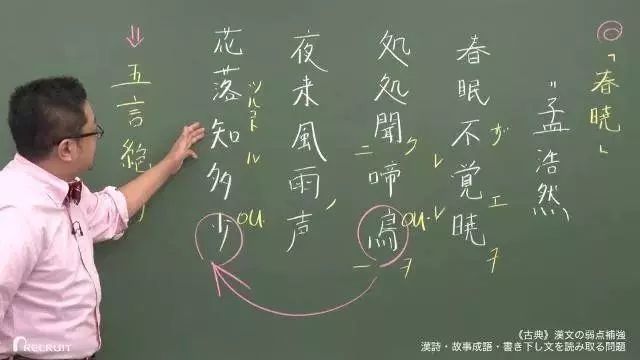 「春暁」
孟浩然
春眠不覚暁
ザ
レ
エ
ヲ
処処聞啼鳥
ク
ニ
OU
レ
ヲ
一
夜来風雨声
ノ
花落知多少
ツルコト
ル
OU
五言絶
《古典》漢文の弱点補強
漢詩・故事成語・書き下し文を読み取る問題
RECRUIT